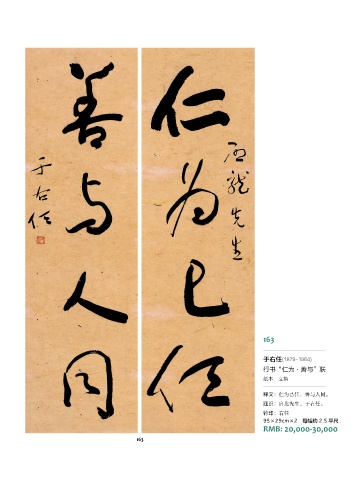 仁为己任
善与人同
于右任
先生
163
163
于右任(1879-1964)
行书“仁为·善与”联
纸本 立轴
释文：仁为己任，善与人同。
钤印：右任
95×29cm×2 每幅约 2.5 平尺
RMB: 20,000-30,000